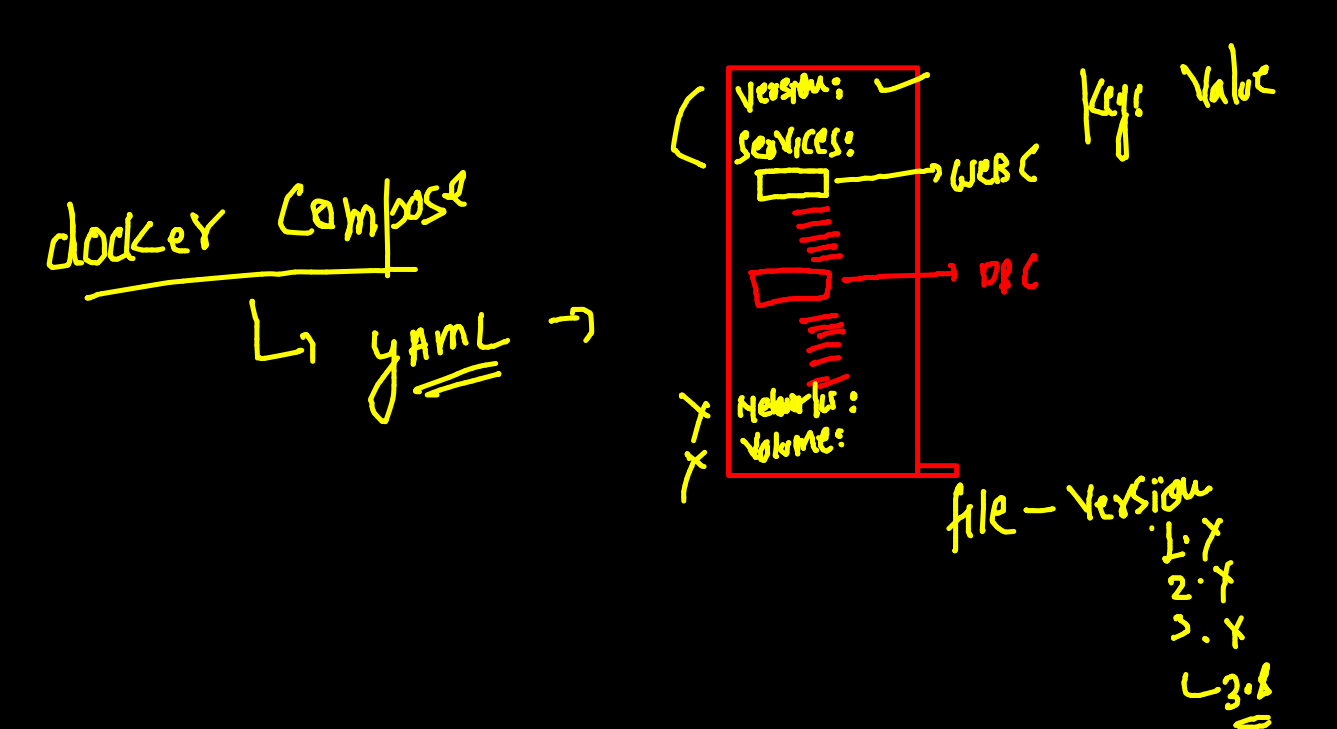 docker compose
yAML
Version:
Services:
WEBC
DBC
Networks:
Volume:
Key: Value
file - Version
1.x
2.x
3.x
3.8